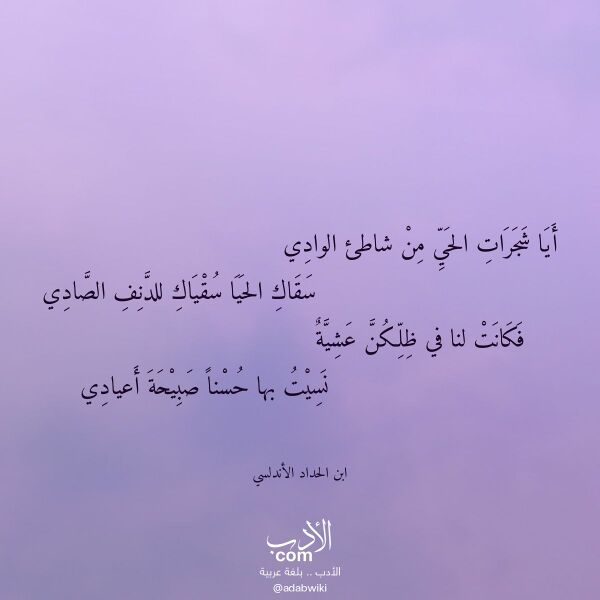 أَيَا شَجَرَاتِ الحَيِّ مِنْ شاطئ الوادِي
سَقَاكِ الحَيَا سُقْيَاكِ للدَّنِفِ الصَّادِي
فَكَانَتْ لنا في ظِلِّكُنَّ عَشِيَّةٌ
نَسِيْتُ بها حُسْناً صَبِيْحَةَ أَعيادِي
ابن الحداد الأندلسي
الأدب
.com
الأدب .. بلغة عربية
@adabwiki